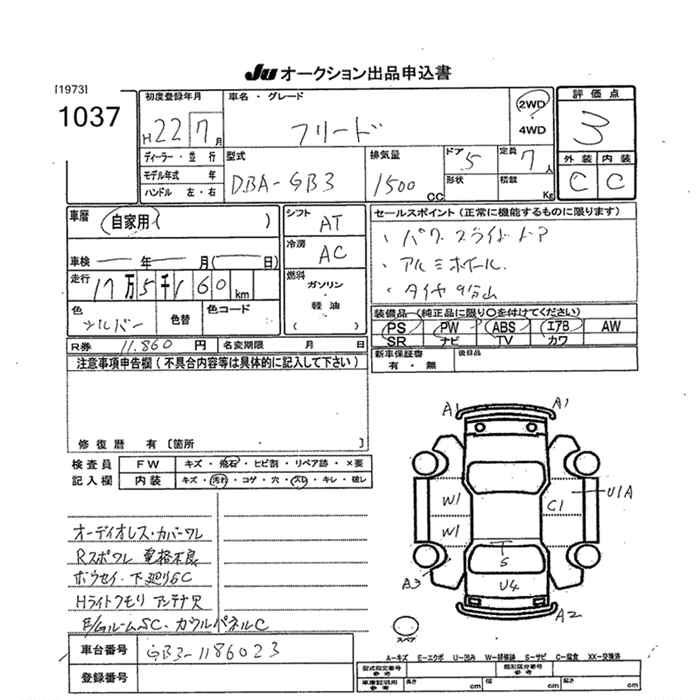 JU オークション出品申込書
[1973]
1037
初度登録年月
H22 7月
車名・グレード
フリード
2WD
4WD
評価点
3
ディーラー・並行
モデル年式 年
ハンドル 左・右
型式
DBA-GB3
排気量
1500cc
ドア 5
形状
定員 7人
積載 Kg
外装 内装
C C
車歴
自家用( )
車検 年 月( 日)
走行
17万5千160km
色
シルバー
色替
色コード
シフト
AT
冷房
AC
燃料
ガソリン・
軽油
( )
セールスポイント(正常に機能するものに限ります)
・パワースライドドア
・アルミホイール
・タイヤ9分山
装備品(純正品に限り○を付けてください)
PS PW ABS エアB AW
SR ナビ TV カワ
R券 11.860円
名変期限 月 日
新車保証書
有・無
後日品
注意事項申告欄(不具合内容等は具体的に記入して下さい)
修復歴 有〔箇所 〕
検査員
記入欄
FW キズ・飛石・ヒビ割・リペア跡・×要
内装 キズ・汚れ・コゲ・穴・スレ・キレ・破レ
オーディオレス・カバーワレ
Rスポワレ 電格不良
ボウセイ・下廻りSC
Hライトクモリ アンテナ欠
E/GルームSC・カウルパネルC
A1 A1
W1
W1
C1
U1A
A3
S
U4
A2
スペア
A…キズ E…エクボ U…凹み W…補修跡 S…サビ C…腐食 XX…交換済
車台番号
GB3-1186023
登録番号
型式指定番号
参考
類別区分番号
参考
車庫証明用
参考
長さ cm
幅 cm
高さ cm